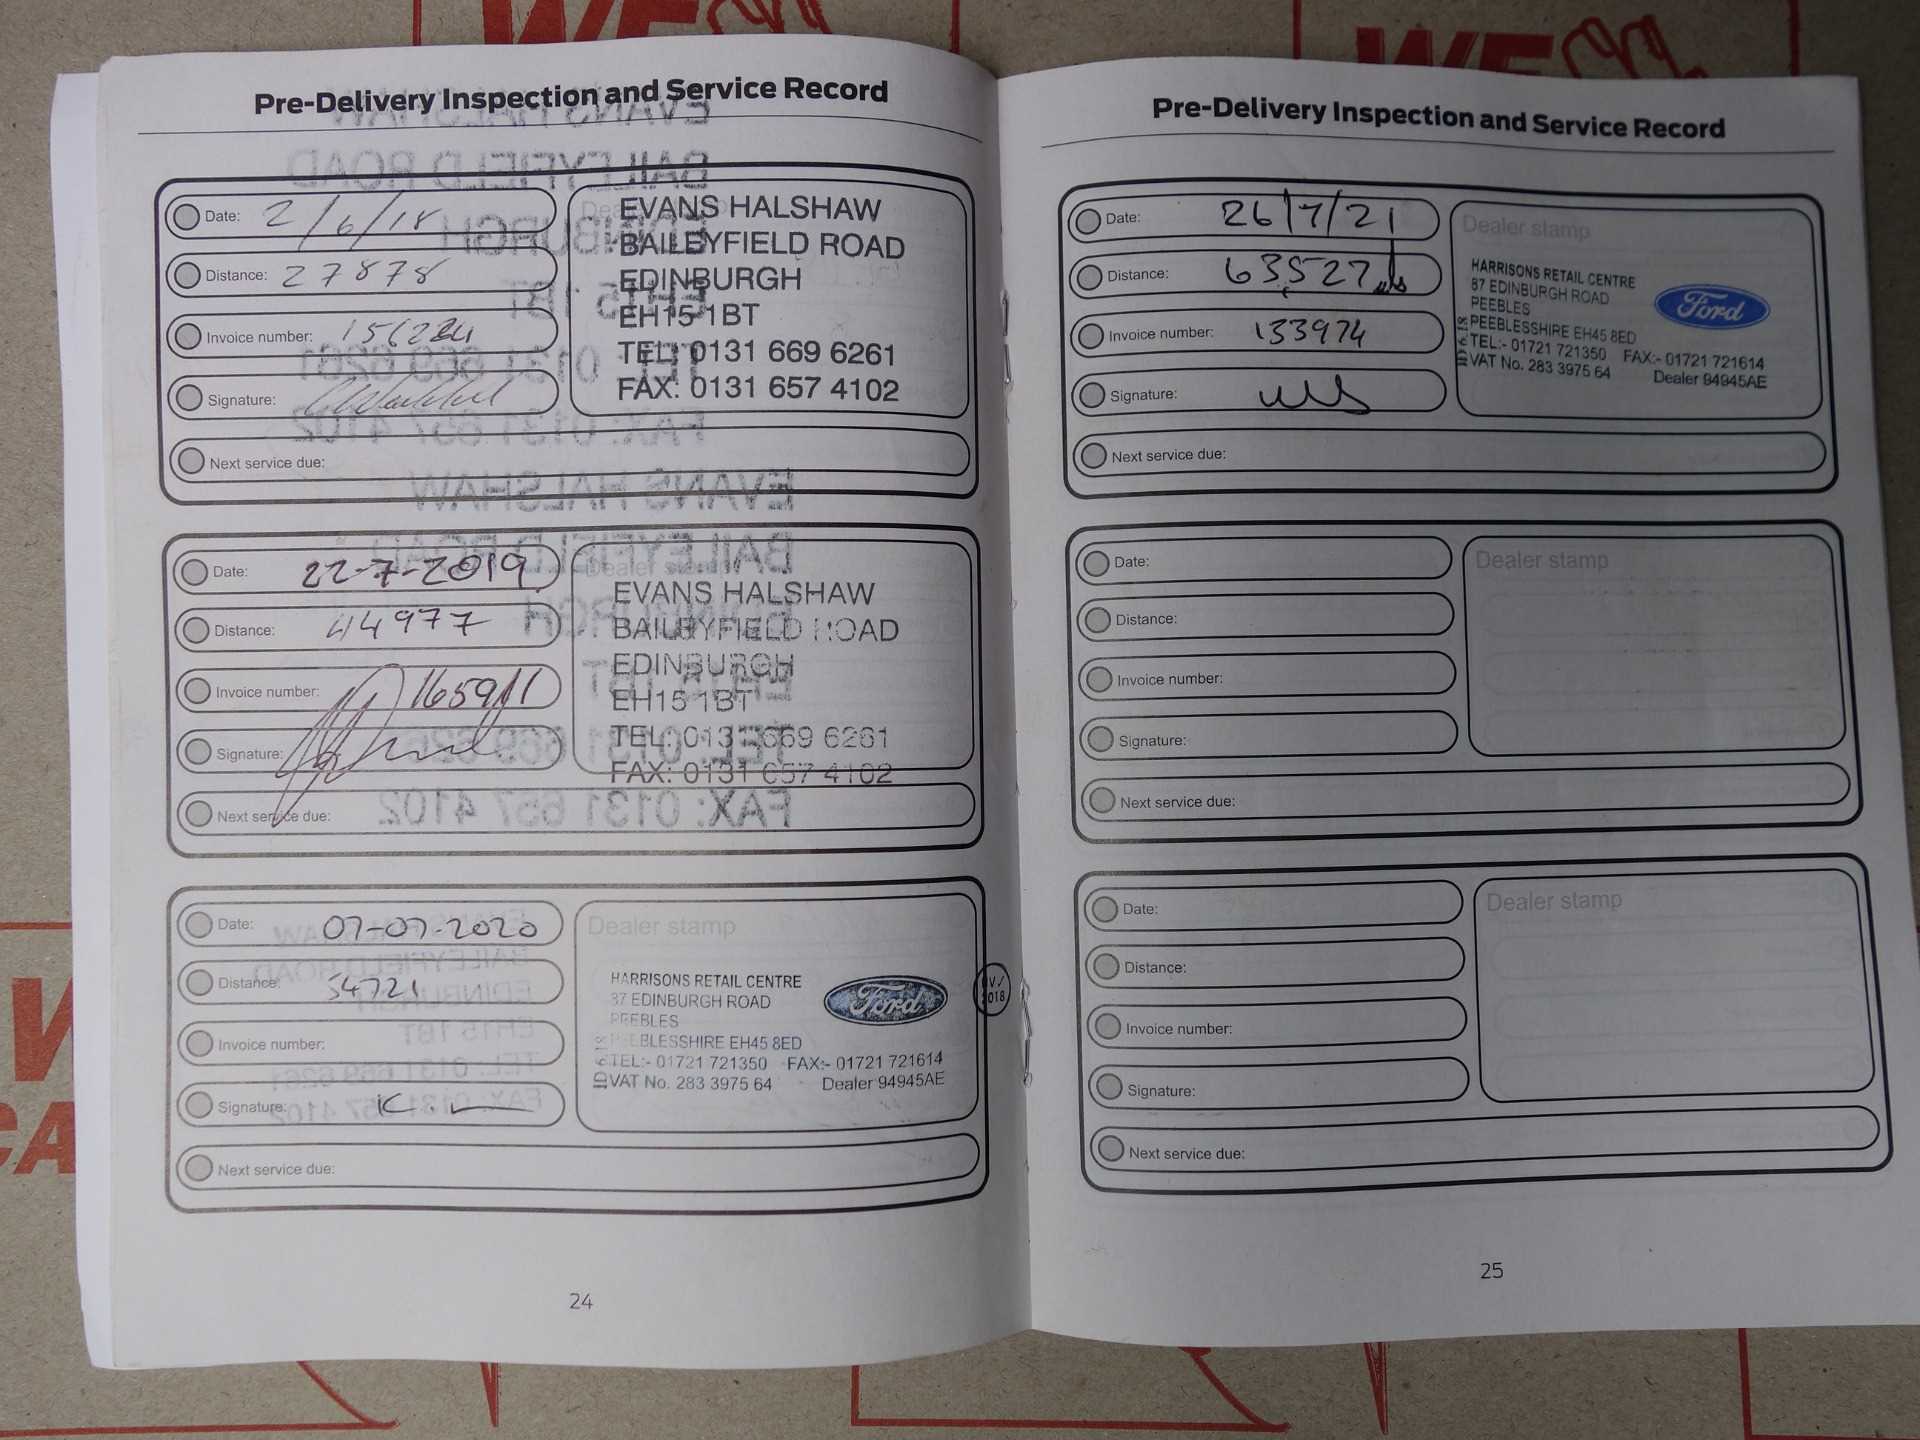 Pre-Delivery Inspection and Service Record
Date: 2/6/18
Distance: 27878
Invoice number: 156224
Signature:
Next service due:
Dealer stamp
EVANS HALSHAW
BAILEYFIELD ROAD
EDINBURGH
EH15 1BT
TEL: 0131 669 6261
FAX: 0131 657 4102
Date: 22-7-2019
Distance: 44977
Invoice number: 165911
Signature:
Next service due:
Dealer stamp
EVANS HALSHAW
BAILEYFIELD ROAD
EDINBURGH
EH15 1BT
TEL: 0131 669 6261
FAX: 0131 657 4102
Date: 07-07-2020
Distance: 54721
Invoice number:
Signature:
Next service due:
Dealer stamp
HARRISONS RETAIL CENTRE
87 EDINBURGH ROAD
PEEBLES
PEEBLESSHIRE EH45 8ED
TEL:- 01721 721350 FAX:- 01721 721614
VAT No. 283 3975 64 Dealer 94945AE
Ford
2018
24
Pre-Delivery Inspection and Service Record
Date: 26/7/21
Distance: 63527
Invoice number: 133974
Signature:
Next service due:
Dealer stamp
HARRISONS RETAIL CENTRE
87 EDINBURGH ROAD
PEEBLES
PEEBLESSHIRE EH45 8ED
TEL:- 01721 721350 FAX:- 01721 721614
VAT No. 283 3975 64 Dealer 94945AE
Ford
Date:
Distance:
Invoice number:
Signature:
Next service due:
Dealer stamp
Date:
Distance:
Invoice number:
Signature:
Next service due:
Dealer stamp
25
WE
WE
W
CA